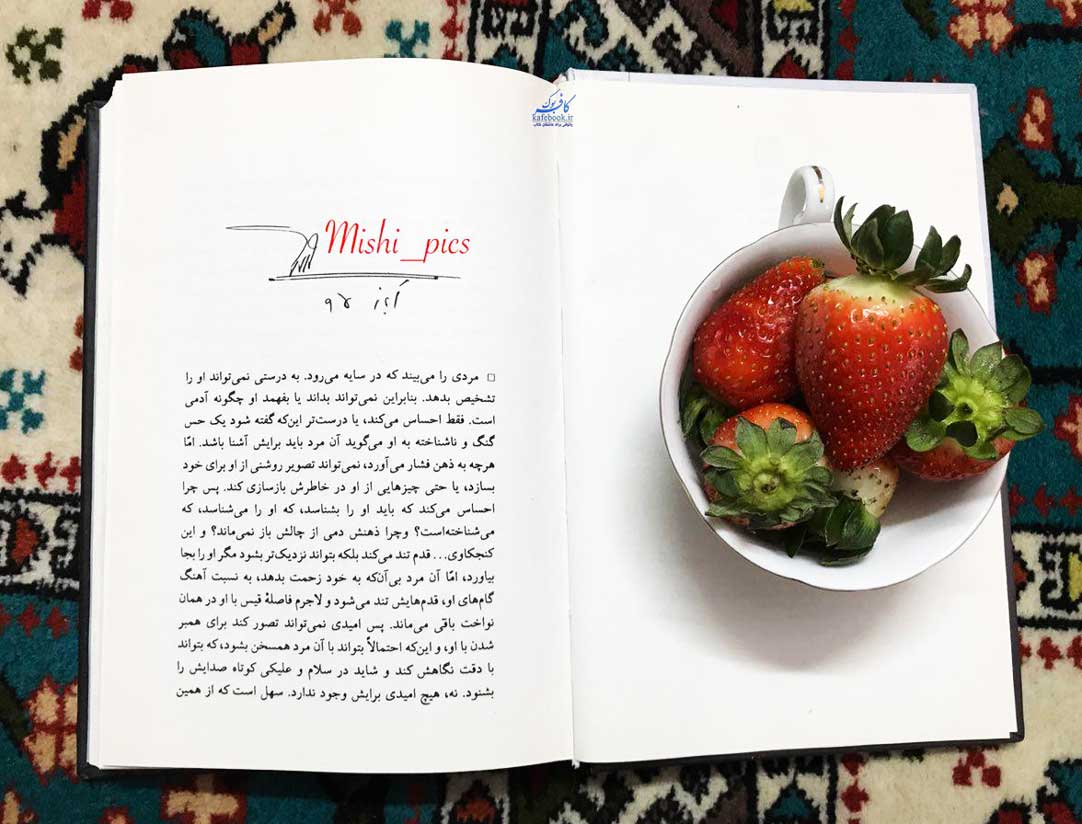 کافه بوک
kafebook.ir
پاتوقی برای عاشقان کتاب
Mishi_pics
آبان ۹۴
□ مردی را می‌بیند که در سایه می‌رود. به درستی نمی‌تواند او را
تشخیص بدهد. بنابراین نمی‌تواند بداند یا بفهمد او چگونه آدمی
است. فقط احساس می‌کند، یا درست‌تر این‌که گفته شود یک حس
گنگ و ناشناخته به او می‌گوید آن مرد باید برایش آشنا باشد. امّا
هرچه به ذهن فشار می‌آورد، نمی‌تواند تصویر روشنی از او برای خود
بسازد، یا حتی چیزهایی از او در خاطرش بازسازی کند. پس چرا
احساس می‌کند که باید او را بشناسد، که او را می‌شناسد، که
می‌شناخته‌است؟ وچرا ذهنش دمی از چالش باز نمی‌ماند؟ و این
کنجکاوی... قدم تند می‌کند بلکه بتواند نزدیک‌تر بشود مگر او را بجا
بیاورد، امّا آن مرد بی‌آن‌که به خود زحمت بدهد، به نسبت آهنگ
گام‌های او، قدم‌هایش تند می‌شود و لاجرم فاصلهٔ قیس با او در همان
نواخت باقی می‌ماند. پس امیدی نمی‌تواند تصور کند برای همبر
شدن با او، و این‌که احتمالاً بتواند با آن مرد همسخن بشود، که بتواند
با دقت نگاهش کند و شاید در سلام و علیکی کوتاه صدایش را
بشنود. نه، هیچ امیدی برایش وجود ندارد. سهل است که از همین